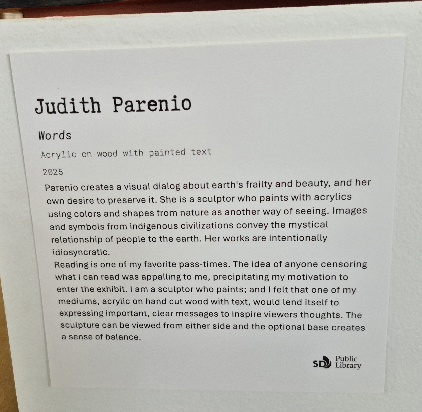 Judith Parenio
Words
Acrylic on wood with painted text
2025
Parenio creates a visual dialog about earth's frailty and beauty, and her
own desire to preserve it. She is a sculptor who paints with acrylics
using colors and shapes from nature as another way of seeing. Images
and symbols from indigenous civilizations convey the mystical
relationship of people to the earth. Her works are intentionally
idiosyncratic.
Reading is one of my favorite pass-times. The idea of anyone censoring
what I can read was appalling to me, precipitating my motivation to
enter the exhibit. I am a sculptor who paints; and I felt that one of my
mediums, acrylic on hand cut wood with text, would lend itself to
expressing important, clear messages to inspire viewers thoughts. The
sculpture can be viewed from either side and the optional base creates
a sense of balance.
SD Public
Library